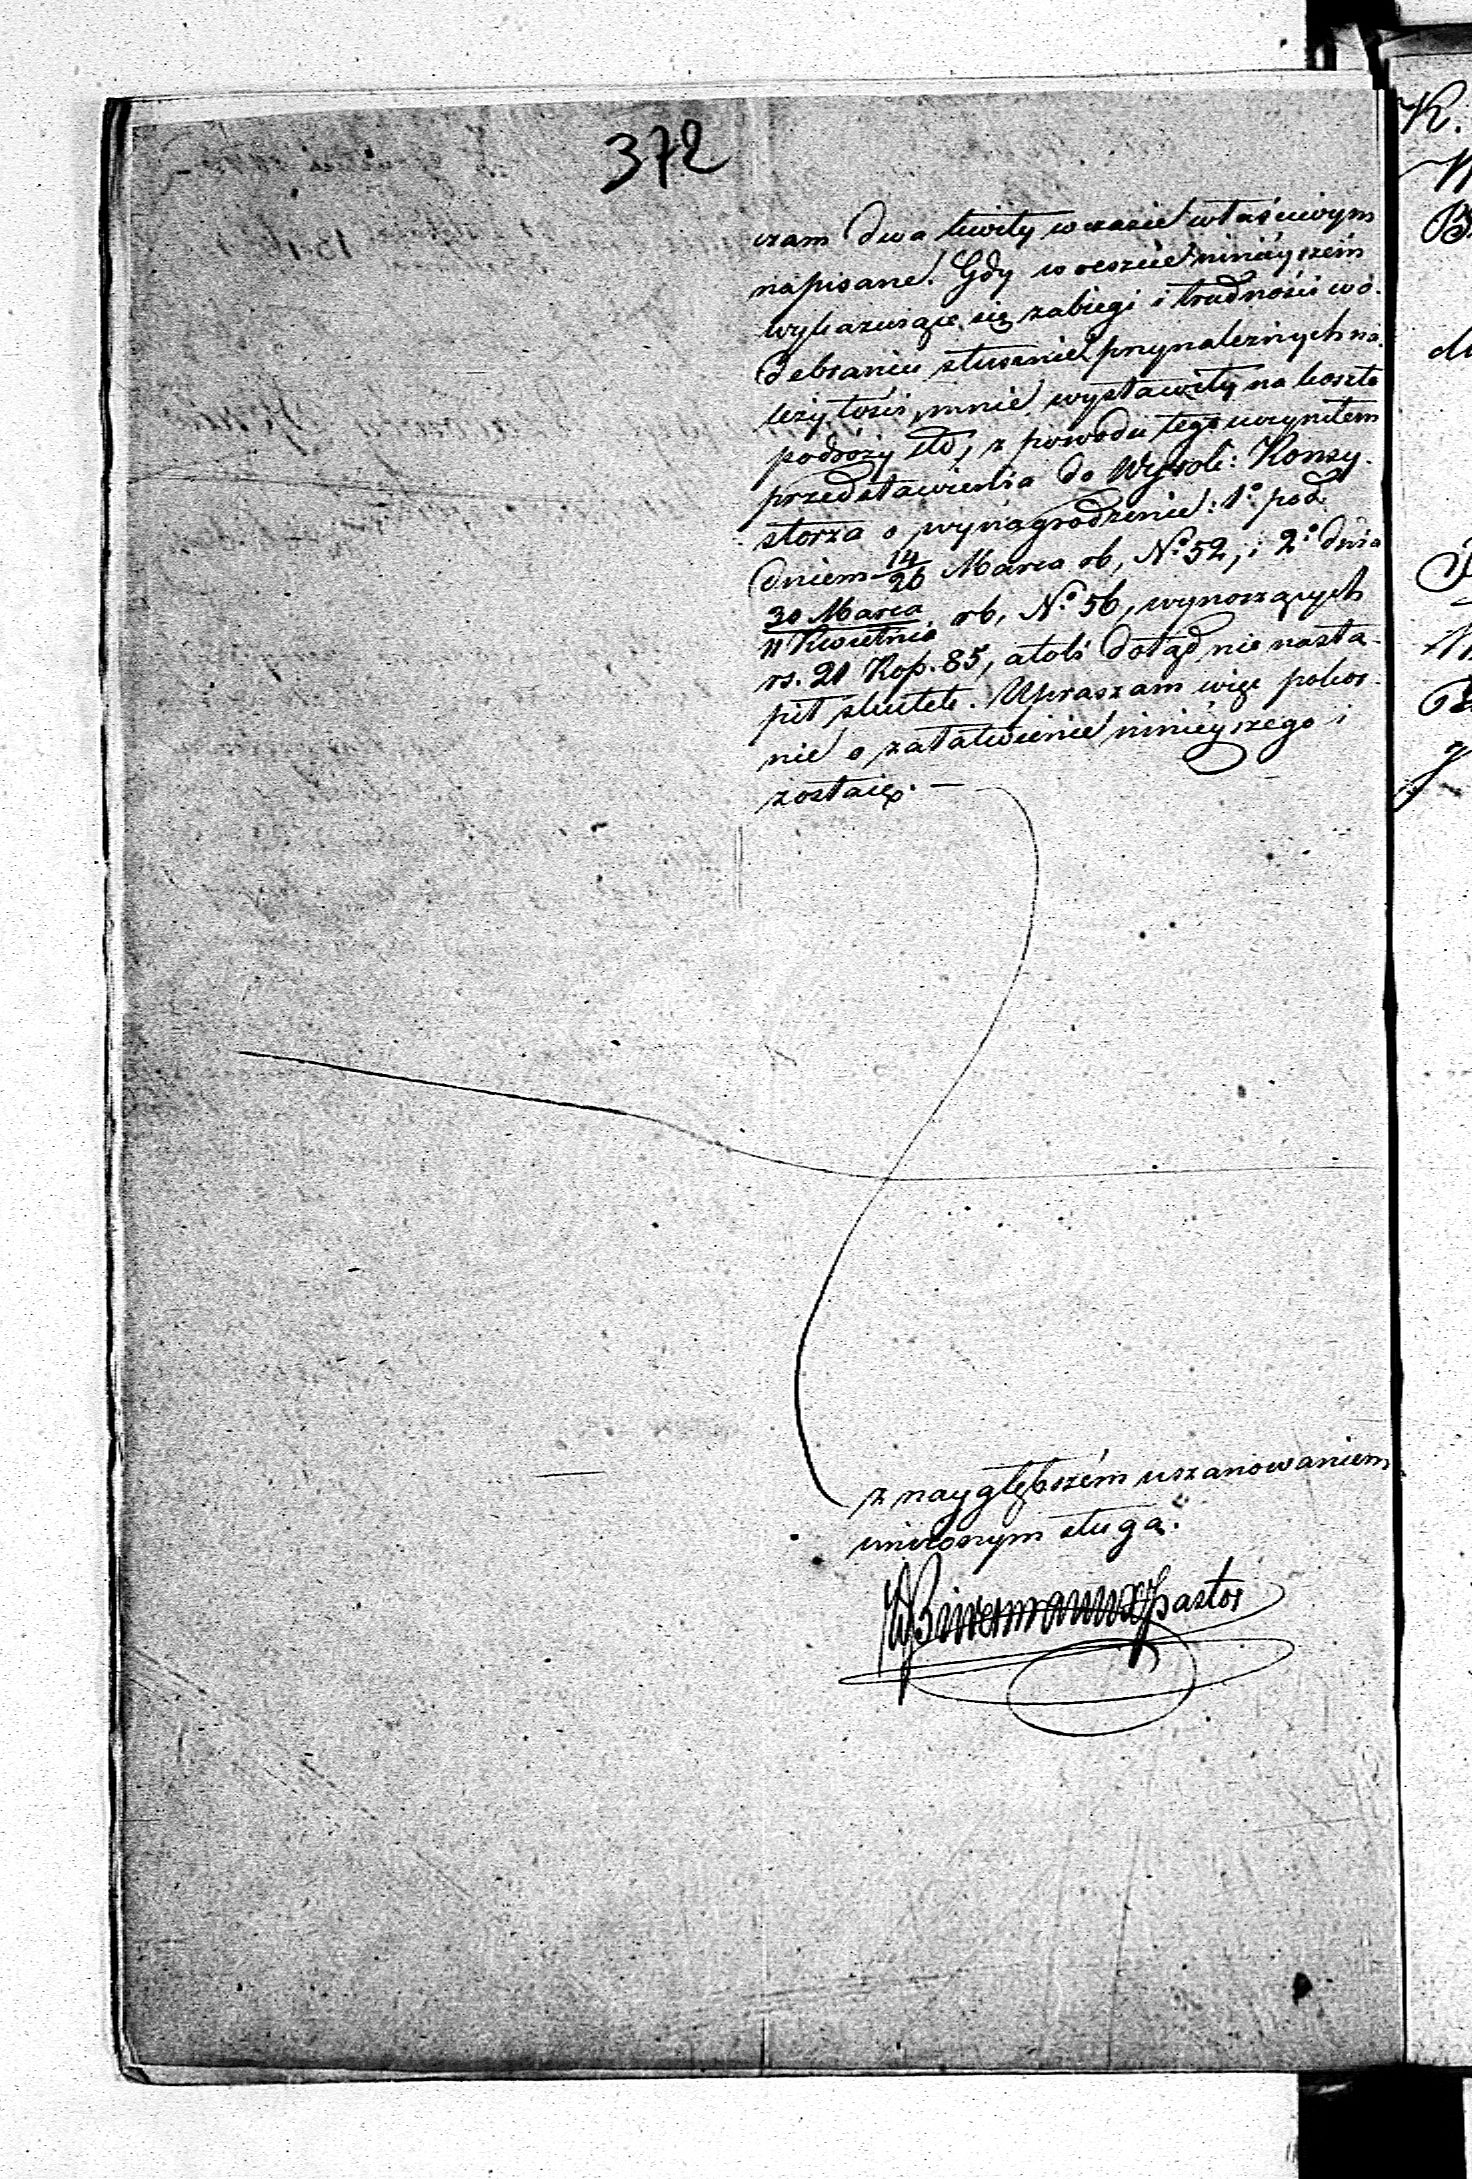 372
czam dwa kwity w czasie właściwym
napisane. Gdy w reszcie ninieyszém
wykazuiące się zabiegi i trudności w o-
debraniu słusznie przynależnych na-
leżytości, mnie wystawiły na koszta
podróży etc, z powodu tego uczyniłem
przedstawienia do Wysok: Konsy-
storza o wynagrodzenie: 1º pod
dniem 14/26 Marca rb, Nº 52, i 2º dnia
30 Marca/11 Kwietnia rb, Nº 56, wynoszących
rs. 21 Kop. 85, atoli dotąd nie nastą-
pił skutek. Upraszam więc pokor-
nie o załatwienie ninieyszego i
zostaię. —
z naygłębszém uszanowaniem
uniżonym sługą.
pastor